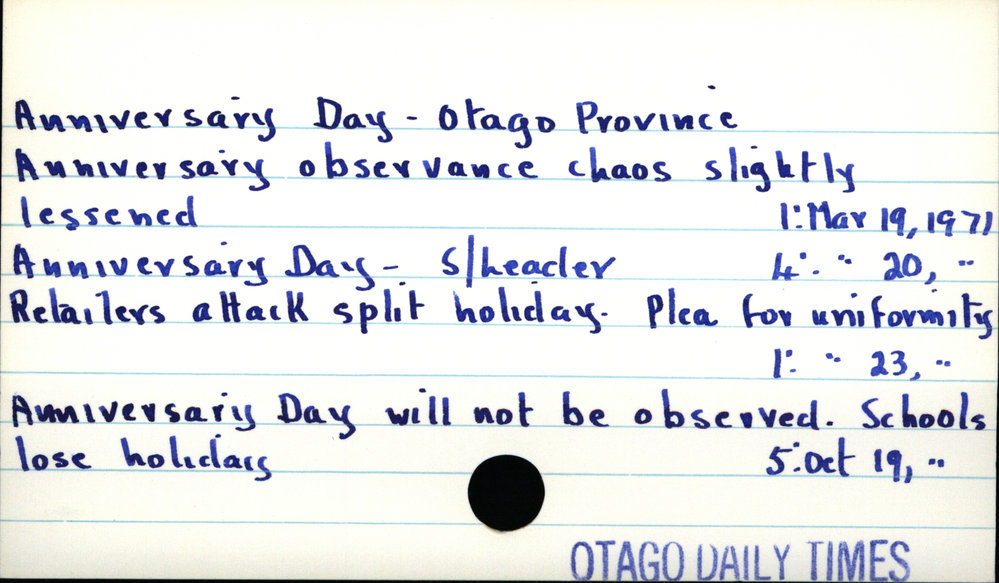 Anniversary Day - Otago Province
Anniversary observance chaos slightly
lessened 1: Mar 19, 1971
Anniversary Day - S/header 4: " 20, "
Retailers attack split holiday. Plea for uniformity
1: " 23, "
Anniversary Day will not be observed. Schools
lose holiday 5: Oct 19, "
OTAGO DAILY TIMES